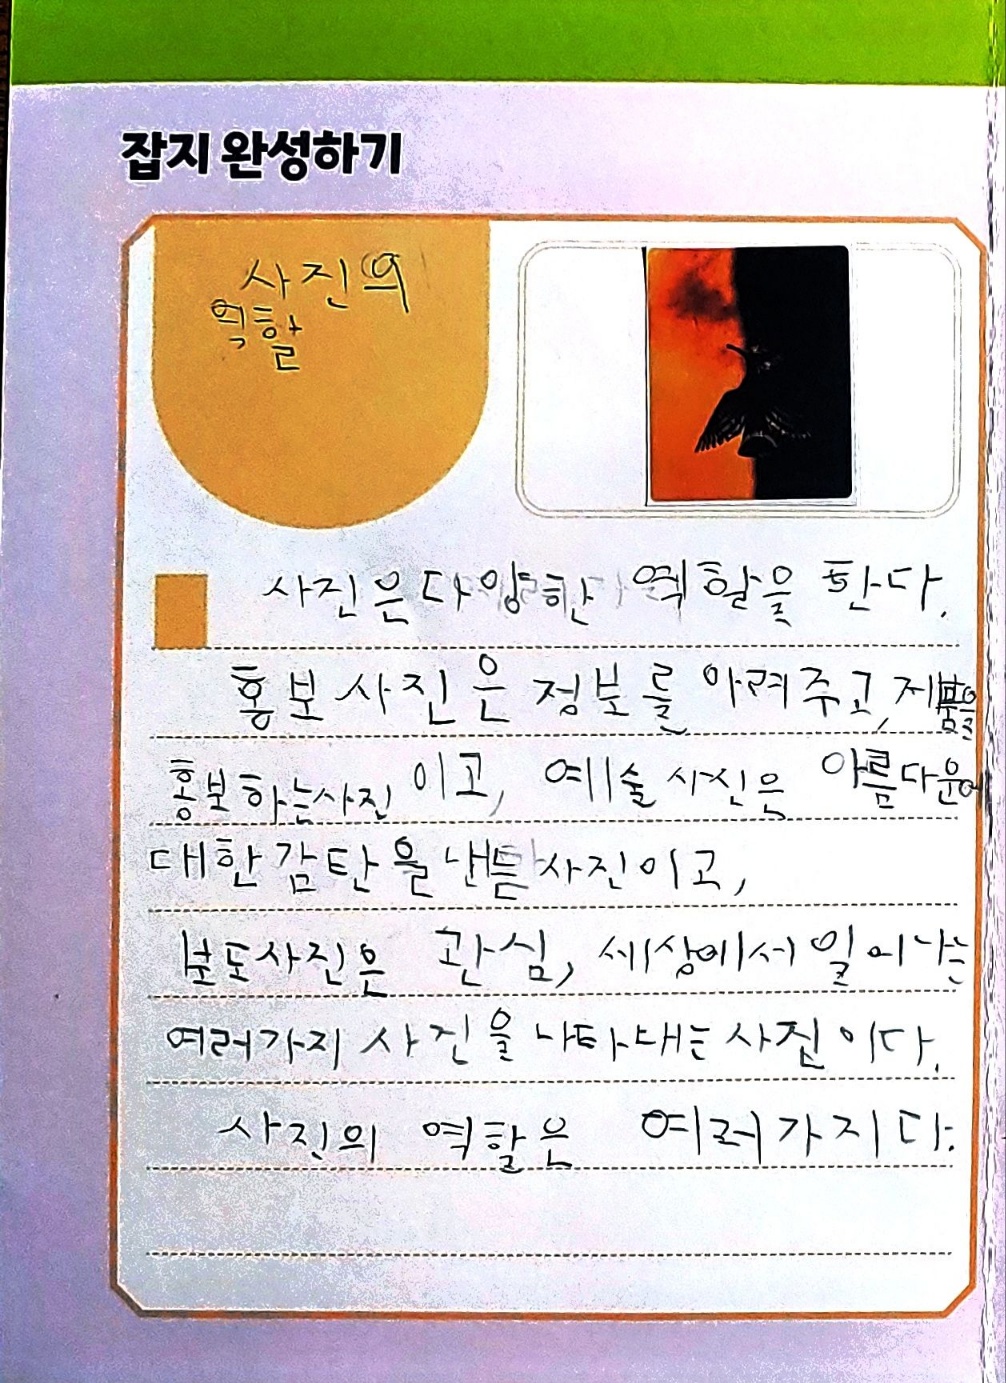 잡지 완성하기
사진의
역할
사진은 다양한 역할을 한다.
홍보 사진은 정보를 아려주고, 제품을
홍보하는사진 이고, 예술 사진은 아름다운에
대한 감탄을 낸 사진이고,
보도사진은 관심, 세상에서 일어나는
여러가지 사진을 나타내는 사진이다.
사진의 역할은 여러가지다.